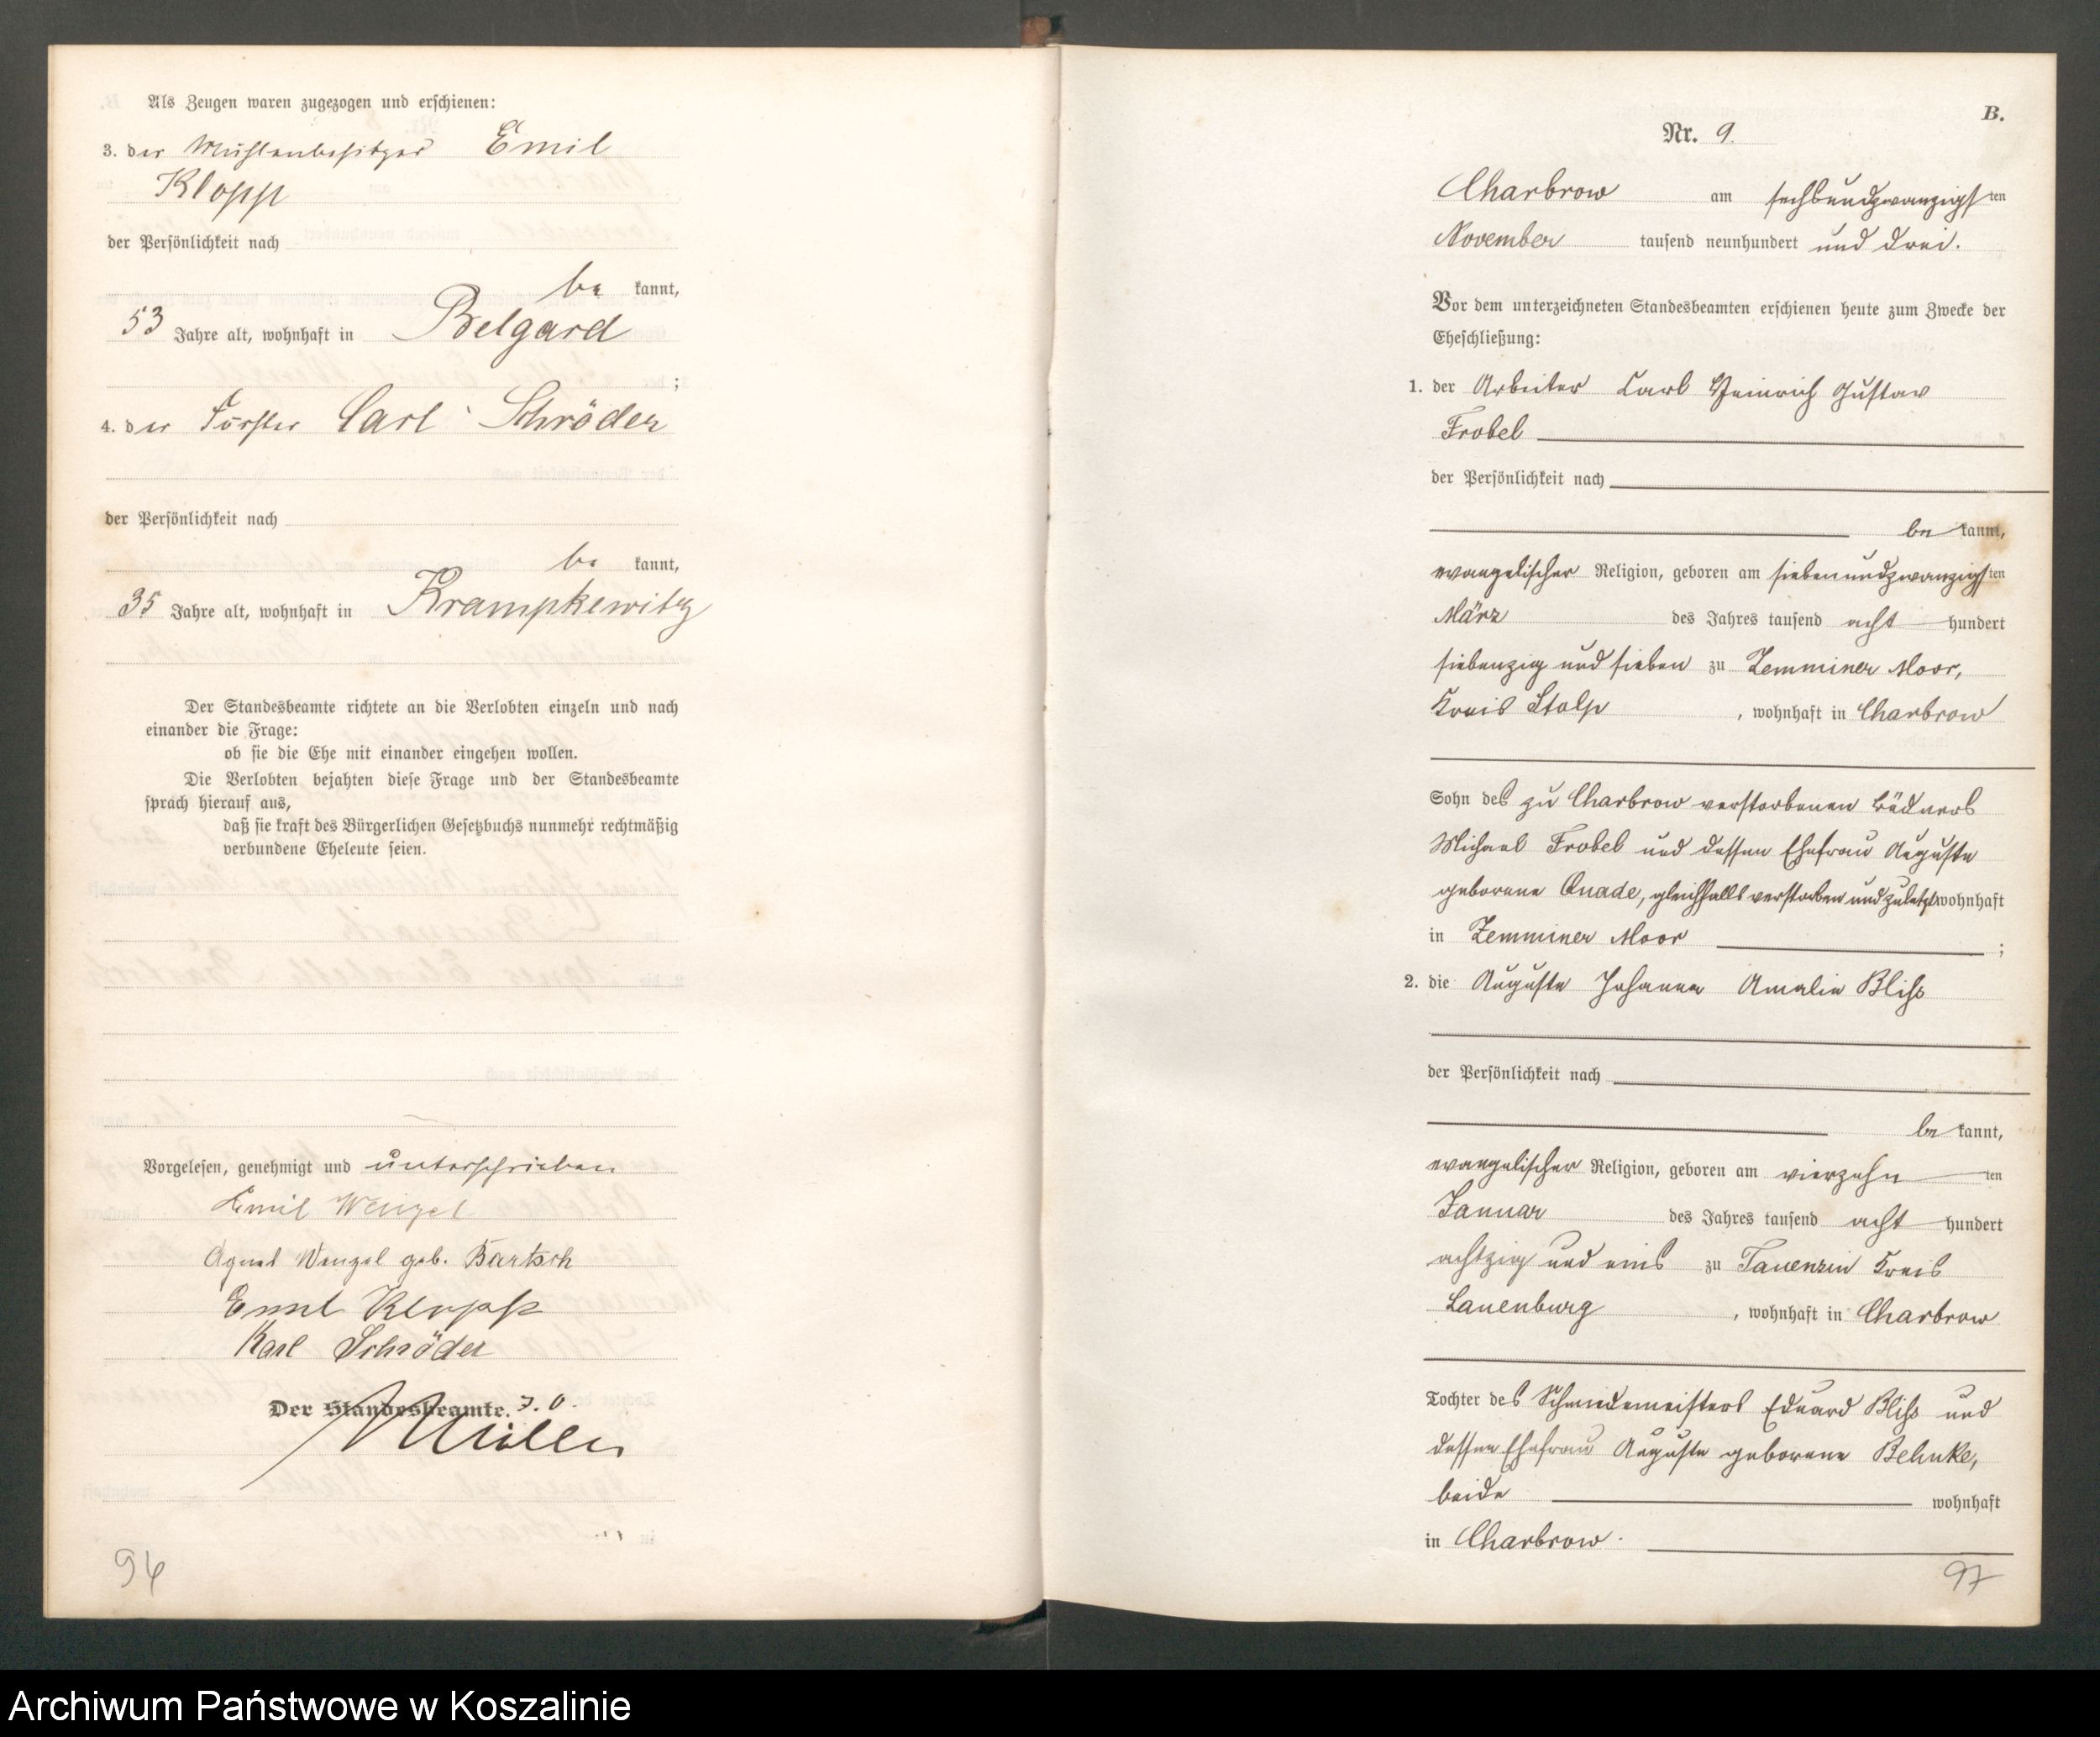 Als Zeugen waren zugezogen und erschienen:
3. der Mühlenbesitzer Emil
Klopp
der Persönlichkeit nach
be kannt,
53 Jahre alt, wohnhaft in Belgard
;
4. der Förster Carl Schröder
der Persönlichkeit nach
be kannt,
35 Jahre alt, wohnhaft in Krampkewitz
Der Standesbeamte richtete an die Verlobten einzeln und nach
einander die Frage:
ob sie die Ehe mit einander eingehen wollen.
Die Verlobten bejahten diese Frage und der Standesbeamte
sprach hierauf aus,
daß sie kraft des Bürgerlichen Gesetzbuchs nunmehr rechtmäßig
verbundene Eheleute seien.
Vorgelesen, genehmigt und unterschrieben
Emil Wenzel
Agnes Wenzel geb. Bartsch
Emil Klopp
Karl Schröder
Der Standesbeamte.
Müller
94
B.
Nr. 9.
Charbrow am sechsundzwanzigsten
November tausend neunhundert und drei.
Vor dem unterzeichneten Standesbeamten erschienen heute zum Zwecke der
Eheschließung:
1. der Arbeiter Carl Heinrich Gustav
Frobel
der Persönlichkeit nach
be kannt,
evangelischer Religion, geboren am siebenundzwanzigsten
März des Jahres tausend acht hundert
siebenzig und sieben zu Zemminer Moor,
Kreis Stolp, wohnhaft in Charbrow
Sohn des zu Charbrow verstorbenen Büdners
Michael Frobel und dessen Ehefrau Auguste
geborene Quade, gleichfalls verstorben und zuletzt wohnhaft
in Zemminer Moor ;
2. die Auguste Johanna Amalie Bliß
der Persönlichkeit nach
be kannt,
evangelischer Religion, geboren am vierzehn ten
Januar des Jahres tausend acht hundert
achtzig und eins zu Tauenzin Kreis
Lauenburg, wohnhaft in Charbrow
Tochter des Schmiedemeisters Eduard Bliß und
dessen Ehefrau Auguste geborene Behnke,
beide wohnhaft
in Charbrow.
97
Archiwum Państwowe w Koszalinie